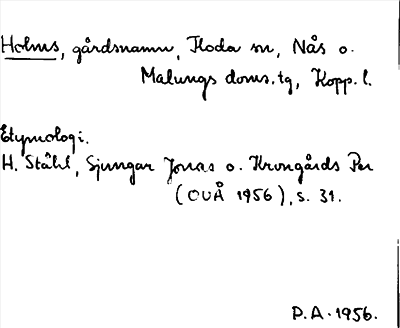 Holms, gårdsnamn, Floda sn, Nås o.
Malungs doms.tg, Kopp. l.
Etymologi.
H. Ståhl, Sjungar Jonas o. Krongårds Per
(OUÅ 1956), s. 31.
P.A. 1956.